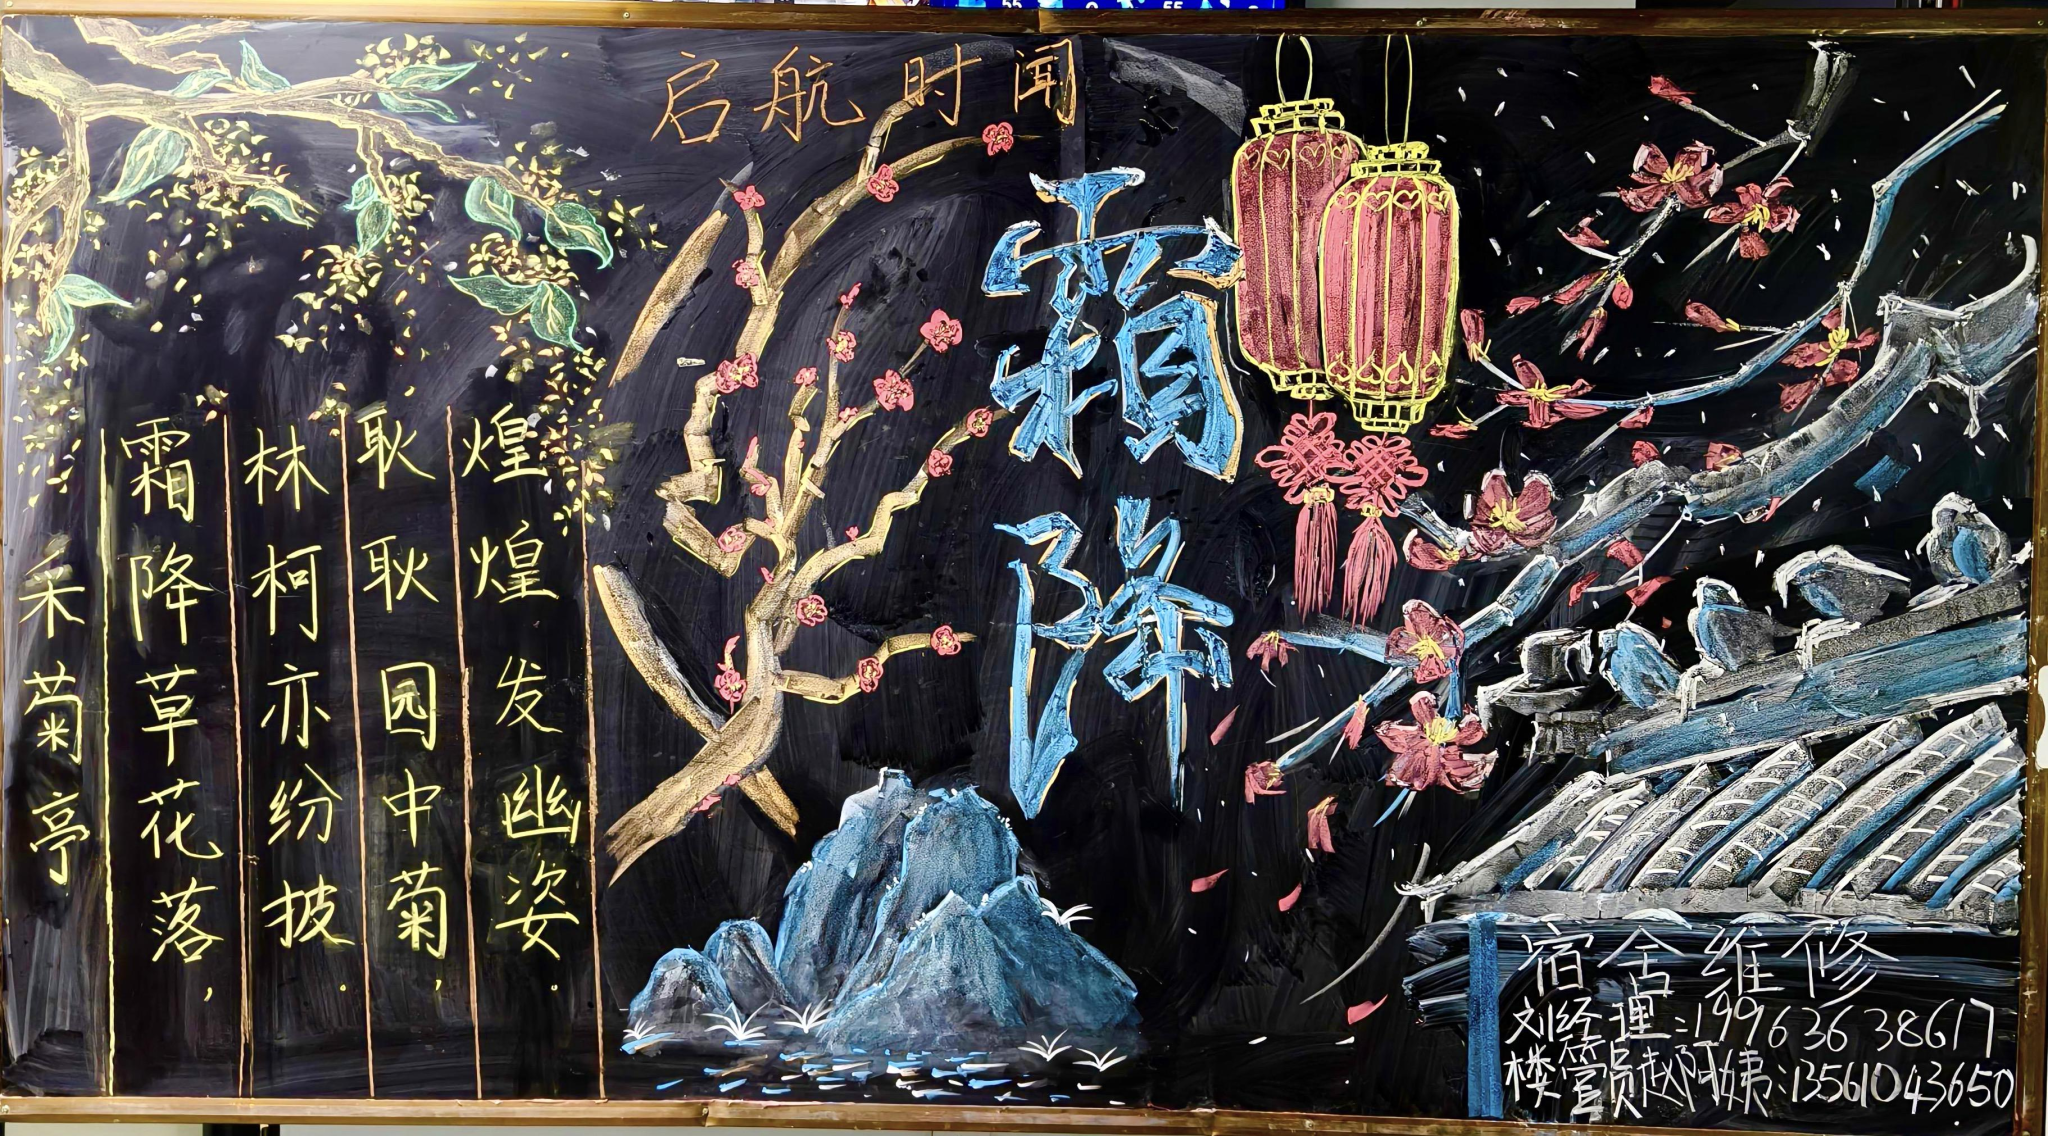 启航时闻
霜降
采菊亭
霜降草花落，
林柯亦纷披.
耿耿园中菊，
煌煌发幽姿.
宿舍维修
刘经理:19963638617
楼管员赵阿姨:13561043650